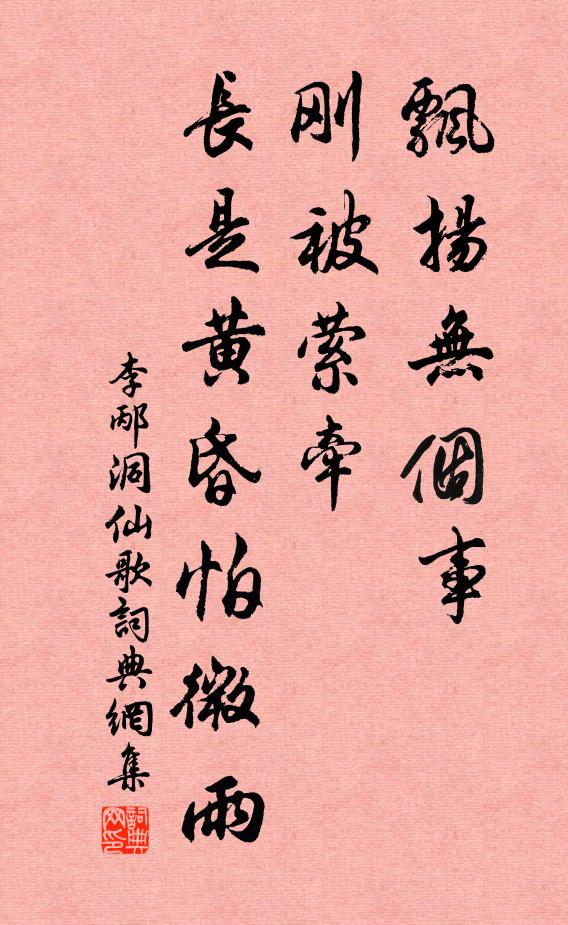 飄揚無個事
剛被縈牽
長是黃昏怕微雨
李邴洞仙歌詞典網集
詞典网印